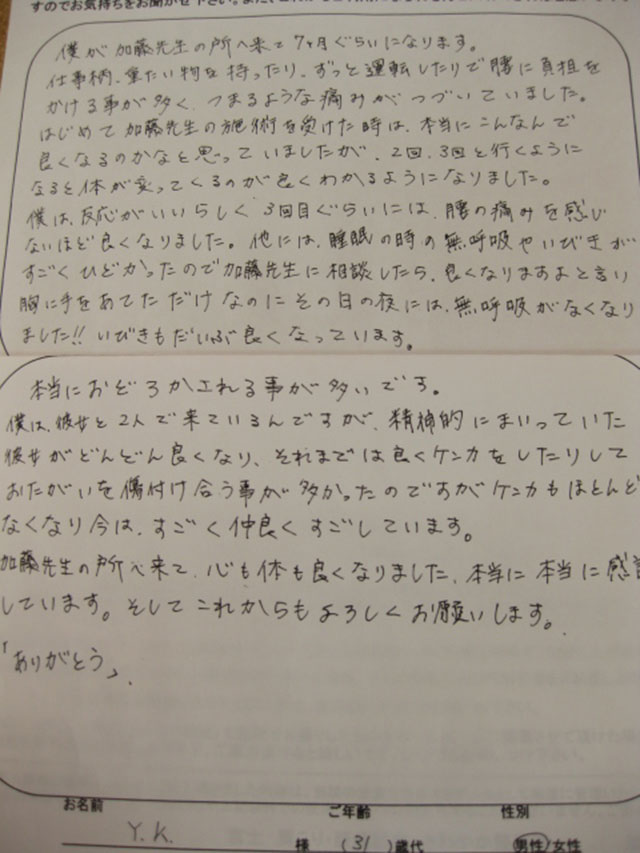 すのでお気持ちをお聞かせ下さい。また、
僕が加藤先生の所へ来て7ヶ月ぐらいになります。
仕事柄、重たい物を持ったり、ずっと運転したりで腰に負担を
かける事が多く、つまるような痛みがつづいていました。
はじめて加藤先生の施術を受けた時は、本当にこんなんで
良くなるのかなと思っていましたが、2回、3回と行くように
なると体が変ってくるのが良くわかるようになりました。
僕は、反応がいいらしく3回目ぐらいには、腰の痛みを感じ
ないほど良くなりました。他には、睡眠の時の無呼吸やいびきが
すごくひどかったので加藤先生に相談したら、良くなりますよと言い
胸に手をあてただけなのにその日の夜には、無呼吸がなくなり
ました!!いびきもだいぶ良くなっています。
本当におどろかされる事が多いです。
僕は、彼女と2人で来ているんですが、精神的にまいっていた
彼女がどんどん良くなり、それまでは良くケンカをしたりして
おたがいを傷付け合う事が多かったのですがケンカもほとんど
なくなり今は、すごく仲良くすごしています。
加藤先生の所へ来て、心も体も良くなりました、本当に本当に感謝
しています。そしてこれからもよろしくお願いします。
「ありがとう」
お名前 ご年齢 性別
Y.K. 様 (31)歳代 男性/女性